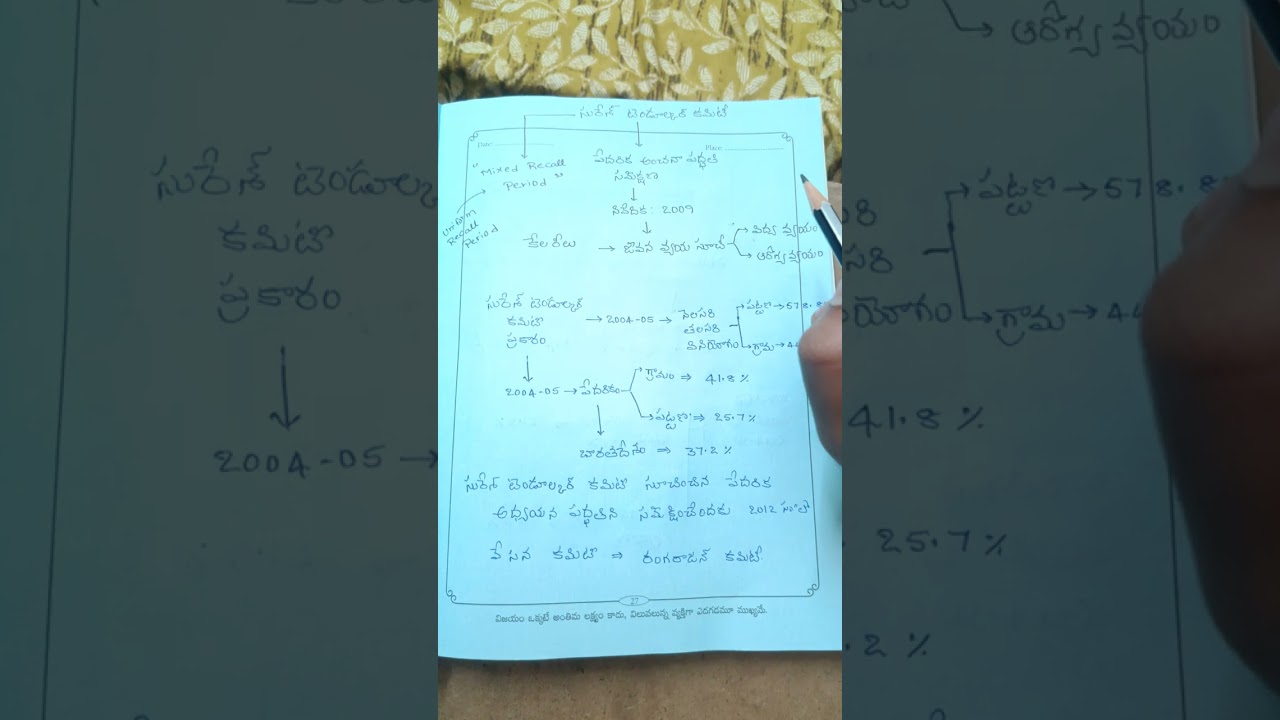 సురేశ్ టెండూల్కర్ కమిటీ
Date: Place:
"Mixed Recall Period"
పేదరిక అంచనా పద్ధతి
సమీక్షణ
Uniform Recall Period
నివేదిక : 2009
కేలరీలు → జీవన వ్యయ సూచీ
విద్య వ్యయం
ఆరోగ్య వ్యయం
సురేశ్ టెండూల్కర్
కమిటీ
ప్రకారం
→ 2004-05 → నెలసరి
తలసరి
వినియోగం
పట్టణ → 578.8
గ్రామ → 44
2004-05 → పేదరికం
గ్రామం ⇒ 41.8 %
పట్టణం ⇒ 25.7 %
భారతదేశం ⇒ 37.2 %
సురేశ్ టెండూల్కర్ కమిటీ సూచించిన పేదరిక
అధ్యయన పద్ధతిని సమీక్షించేందుకు 2012 సం"లో
వేసిన కమిటీ ⇒ రంగరాజన్ కమిటీ
27
విజయం ఒక్కటే అంతిమ లక్ష్యం కాదు, విలువలున్న వ్యక్తిగా ఎదగడమూ ముఖ్యమే.